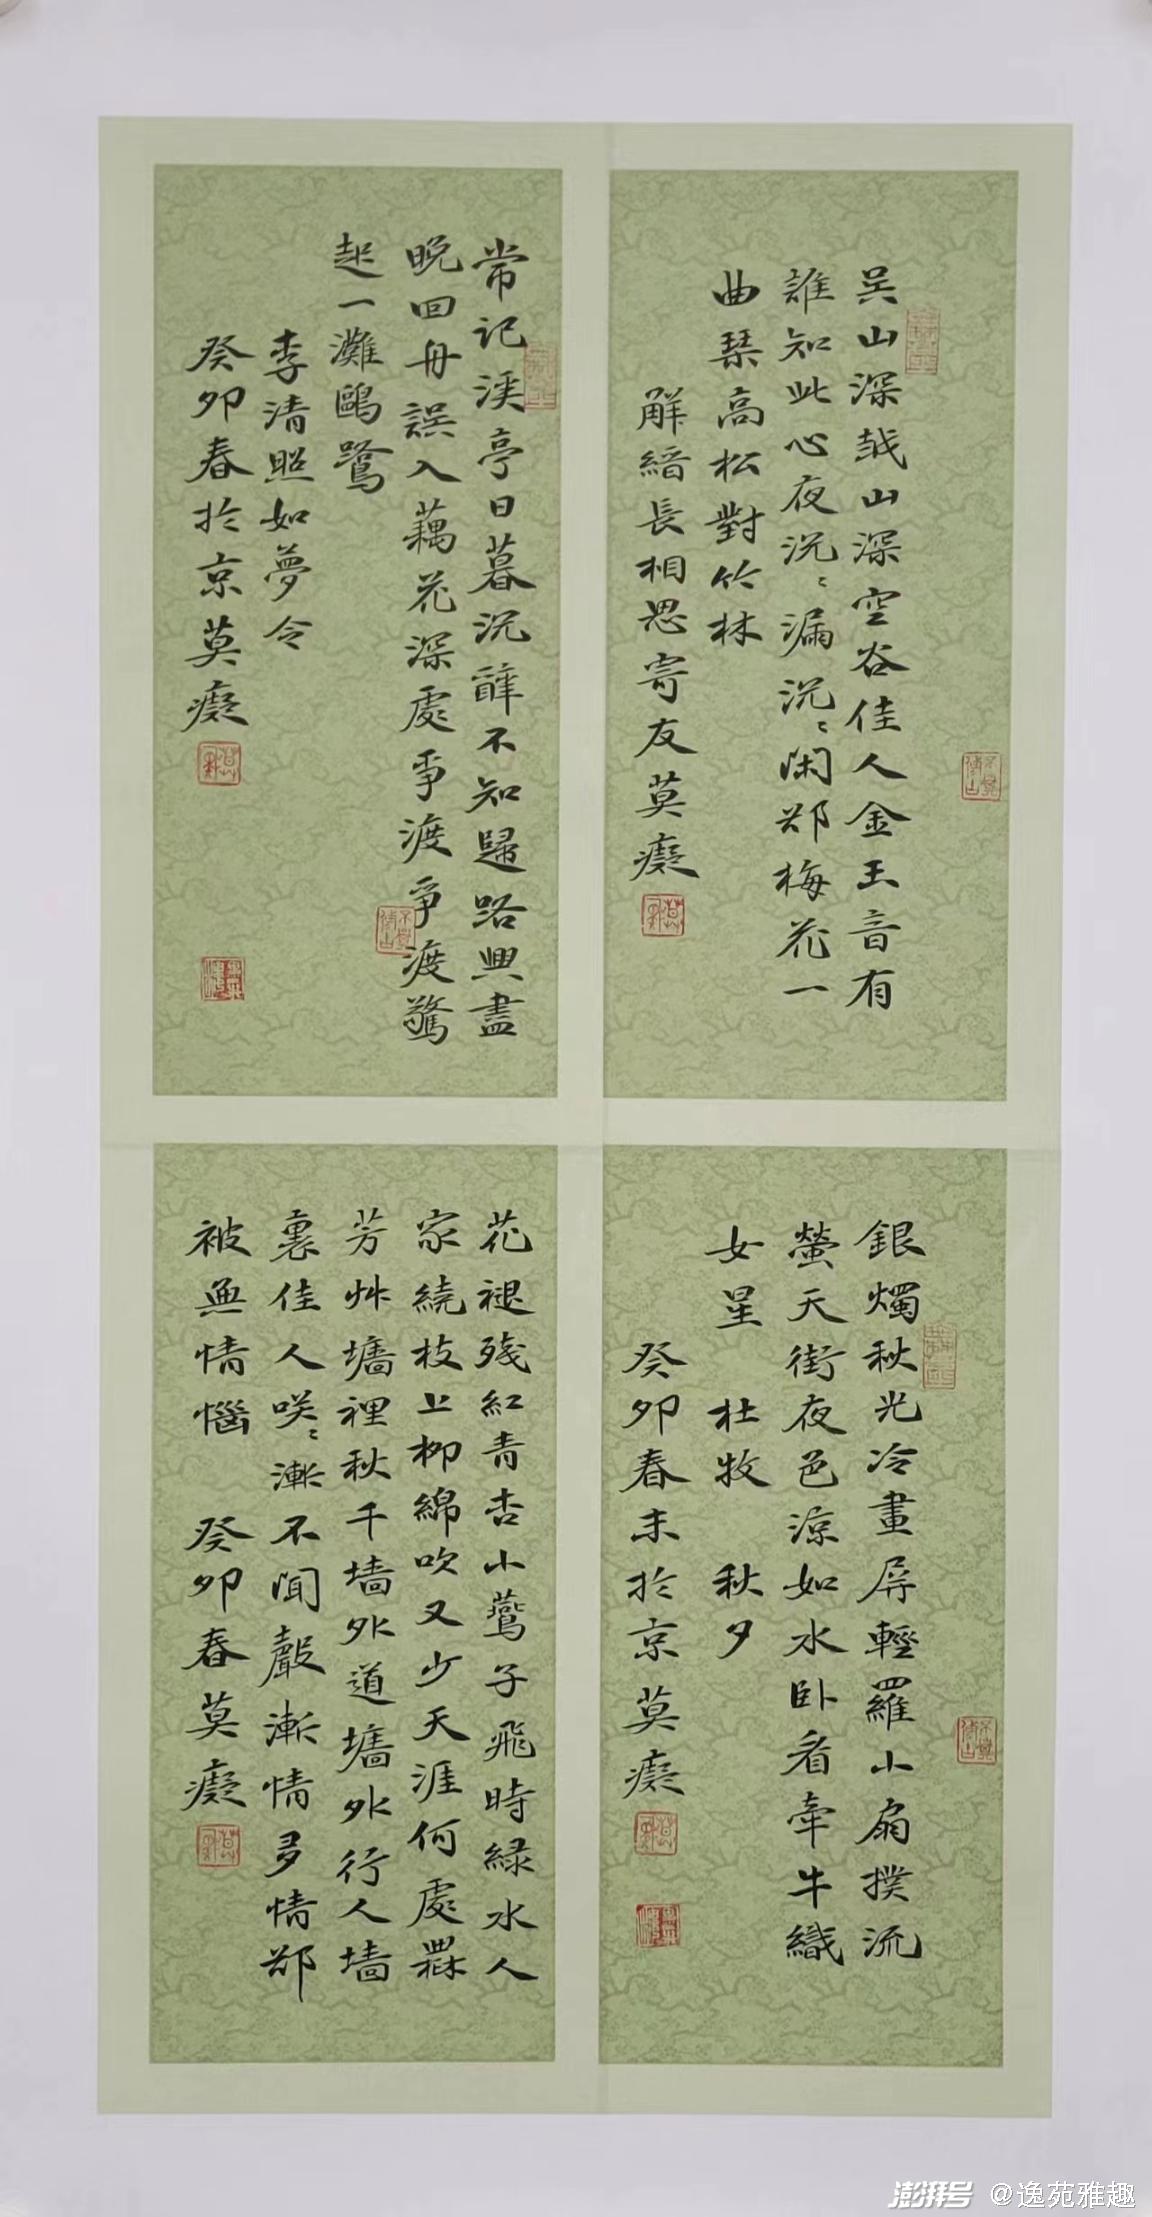 吴山深越山深空谷佳人金玉音有
誰知此心夜沉〻漏沉〻闲却梅花一
曲琴高松對竹林
解縉長相思寄友莫癡
常记溪亭日暮沉醉不知歸路興盡
晚回舟誤入藕花深處爭渡爭渡驚
起一灘鷗鷺
李清照如夢令
癸卯春於京莫癡
銀燭秋光冷畫屏輕羅小扇撲流
螢天街夜色涼如水卧看牽牛織
女星 杜牧 秋夕
癸卯春末於京莫癡
花褪殘紅青杏小鷰子飛時緑水人
家繞枝上柳綿吹又少天涯何處無
芳艸墻裡秋千墙外道墻外行人墙
裏佳人咲〻漸不聞聲漸情多情却
被無情惱 癸卯春莫癡
澎湃号 @逸苑雅趣